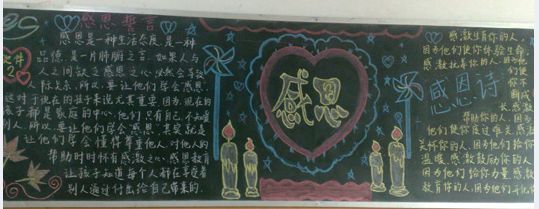 感恩誓言
感恩是一种生活态度,是一种
品德,是一片肺腑之言。如果人与
人之间缺乏感恩之心,必然会导致
人际关系,所以,要让他们学会"感恩"
这对于现在的孩子来说尤其重要。因为,现在的
孩子都是家庭的中心,他们只有自己,不知爱
别人。所以,要让他们学会"感恩",其实就是
让他们学会懂得尊重他人。对他人的
帮助时时怀有感激之心,感恩教育
让孩子知道每个人都在享受着
别人通过付出给自己带来的
感恩
感激生育你的人,
因为他们使你体验生命。
感激抚养你的人,因为
他们使
你不
断成
长
感恩诗
感激
帮助你的人,因为
他们使你度过难关。感激
关怀你的人,因为他们给你
温暖。感激鼓励你的人,
因为他们给你力量。感激
教育你的人,因为他们开化你